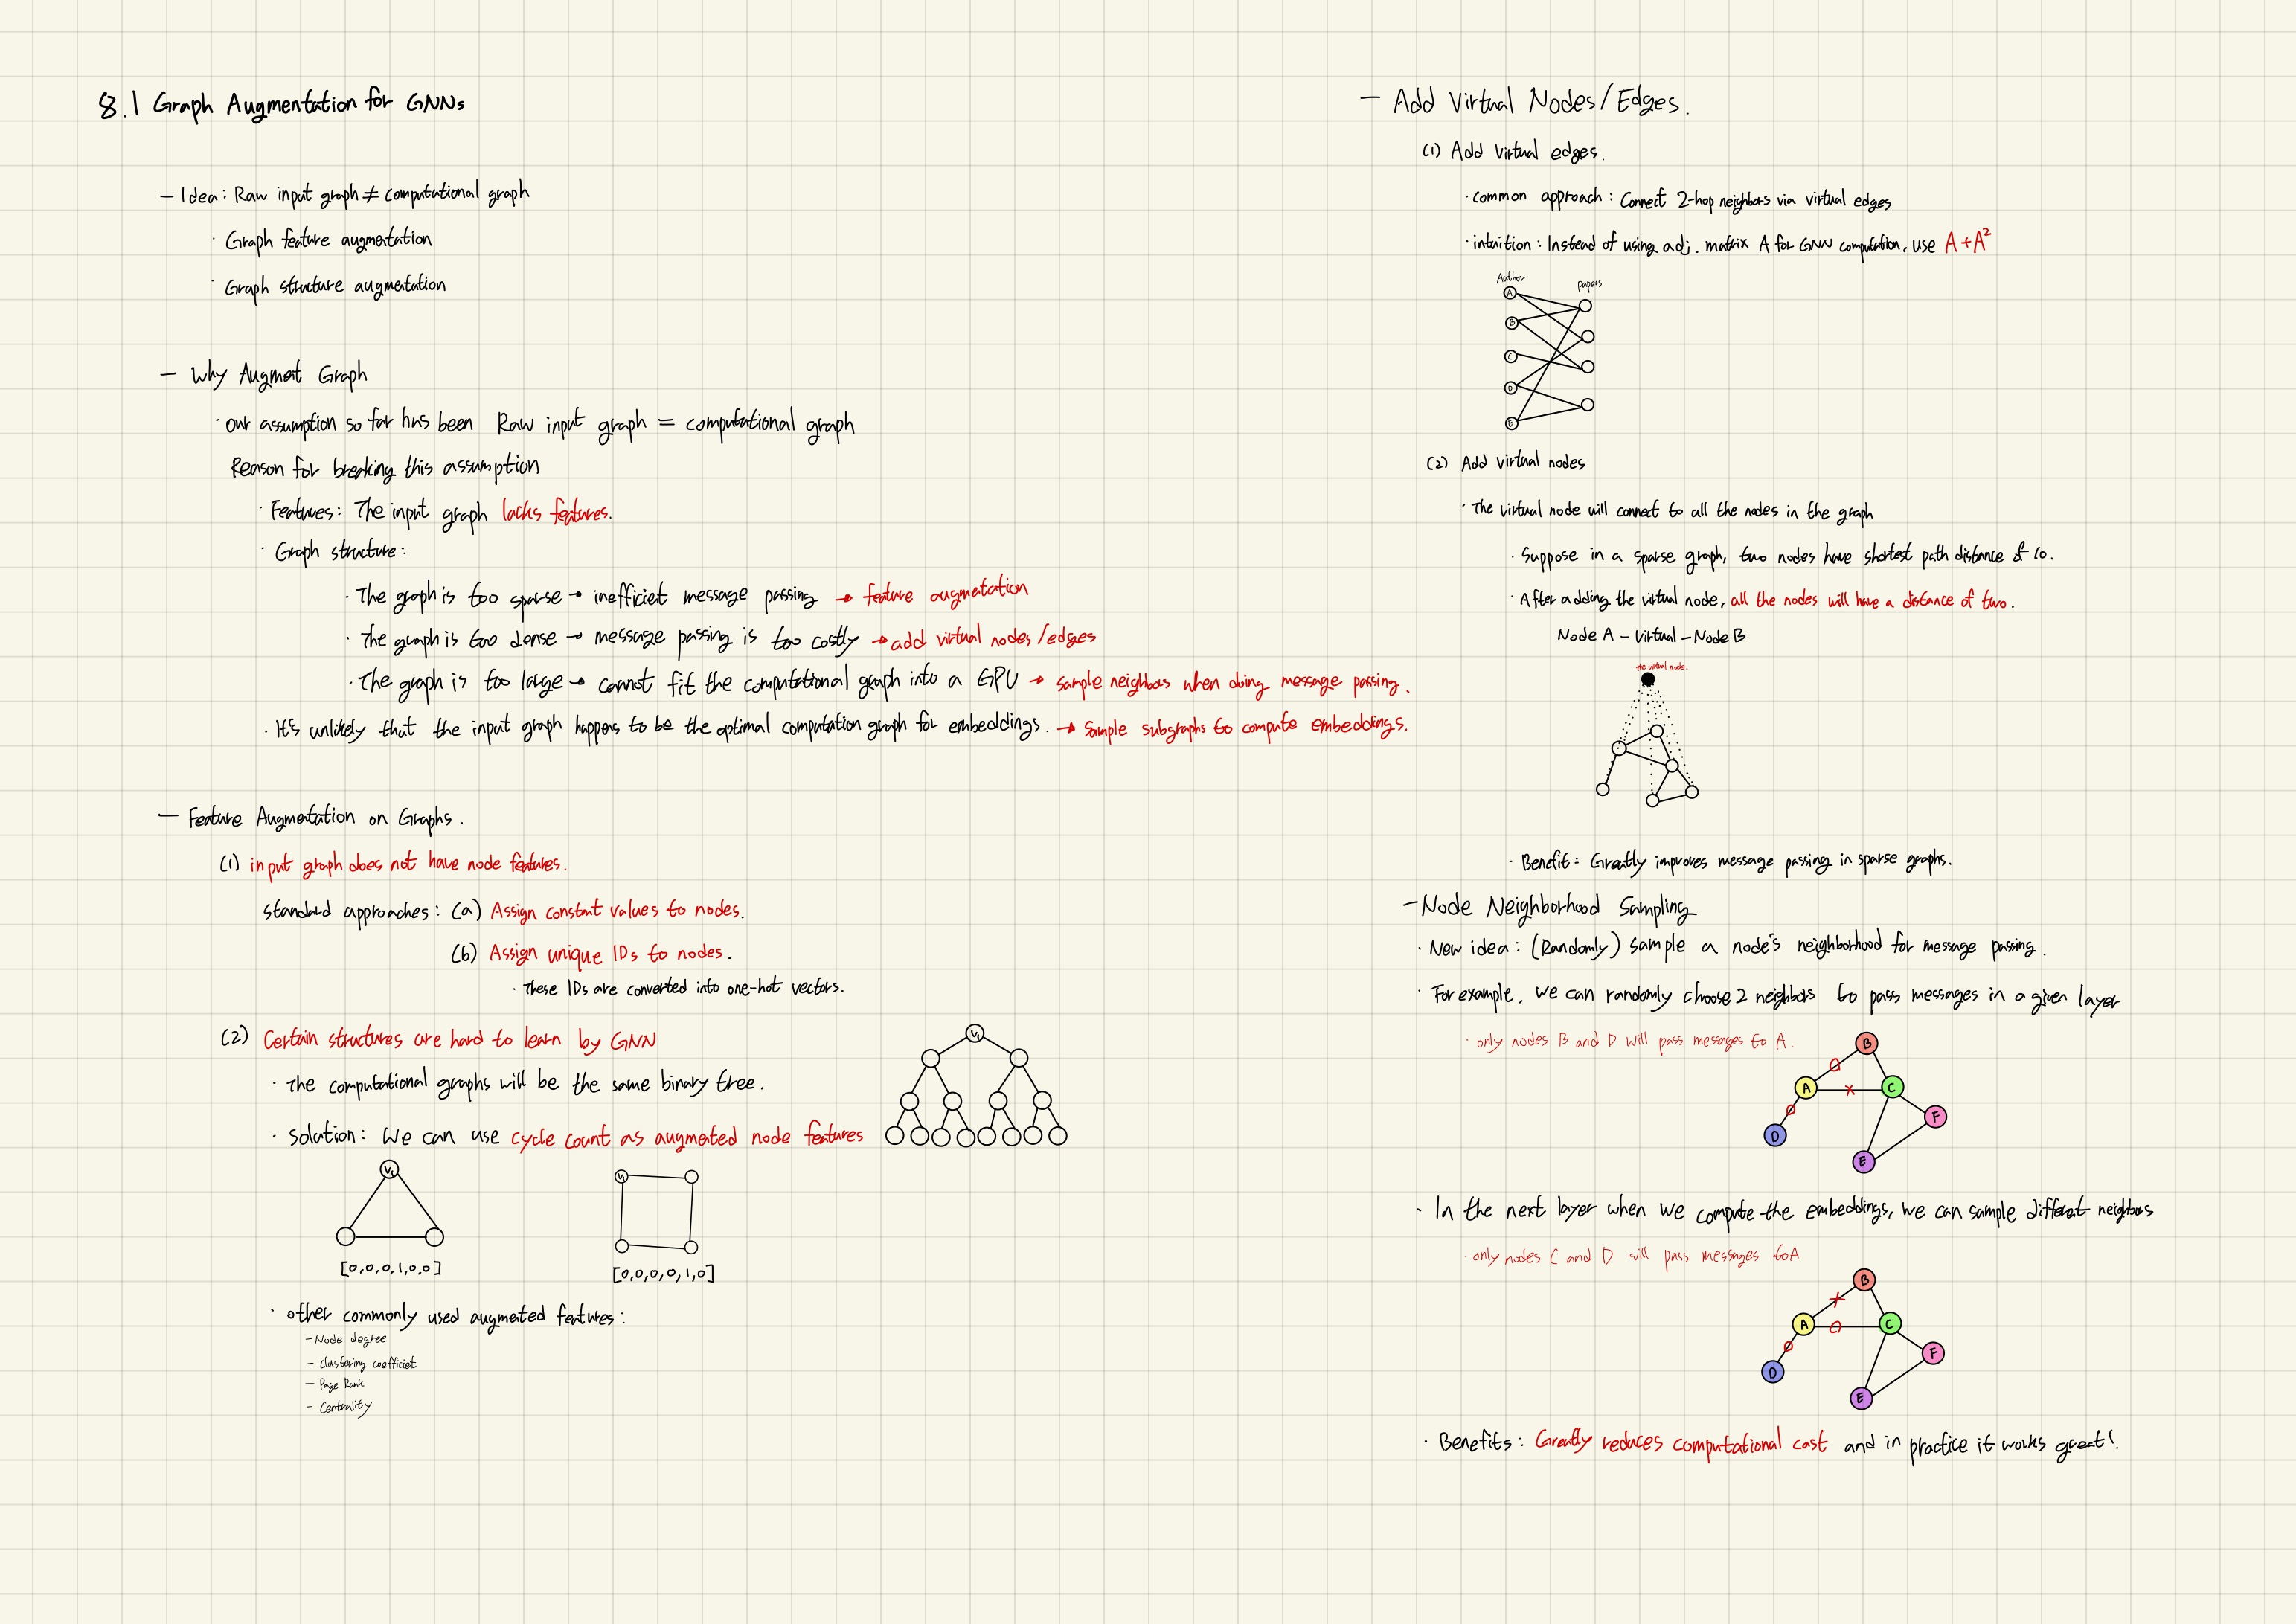 8.1 Graph Augmentation for GNNs
- Idea: Raw input graph ≠ computational graph
· Graph feature augmentation
· Graph structure augmentation
- Why Augment Graph
· our assumption so far has been Raw input graph = computational graph
Reason for breaking this assumption
· Features: The input graph lacks features.
· Graph structure:
· The graph is too sparse → inefficient message passing → feature augmentation
· The graph is too dense → message passing is too costly → add virtual nodes/edges
· The graph is too large → cannot fit the computational graph into a GPU → sample neighbors when doing message passing.
· It's unlikely that the input graph happens to be the optimal computation graph for embeddings. → Sample subgraphs to compute embeddings.
- Feature Augmentation on Graphs.
(1) input graph does not have node features.
standard approaches: (a) Assign constant values to nodes.
(b) Assign unique IDs to nodes.
· These IDs are converted into one-hot vectors.
(2) Certain structures are hard to learn by GNN
· The computational graphs will be the same binary tree.
· Solution: We can use cycle count as augmented node features
V1
V1
V1
[0,0,0,1,0,0]
[0,0,0,0,1,0]
· other commonly used augmented features:
- Node degree
- clustering coefficient
- Page Rank
- Centrality
- Add Virtual Nodes/Edges.
(1) Add virtual edges.
· common approach: Connect 2-hop neighbors via virtual edges
· intuition: Instead of using adj. matrix A for GNN computation, use A+A²
Author
papers
A
B
C
D
E
(2) Add virtual nodes
· The virtual node will connect to all the nodes in the graph
· Suppose in a sparse graph, two nodes have shortest path distance of 10.
· After adding the virtual node, all the nodes will have a distance of two.
Node A - Virtual - Node B
the virtual node.
· Benefit: Greatly improves message passing in sparse graphs.
- Node Neighborhood Sampling
· New idea: (Randomly) sample a node's neighborhood for message passing.
· For example, we can randomly choose 2 neighbors to pass messages in a given layer
· only nodes B and D will pass messages to A.
B
A
C
F
D
E
· In the next layer when we compute the embeddings, we can sample different neighbors
· only nodes C and D will pass messages to A
B
A
C
F
D
E
· Benefits: Greatly reduces computational cast and in practice it works great!